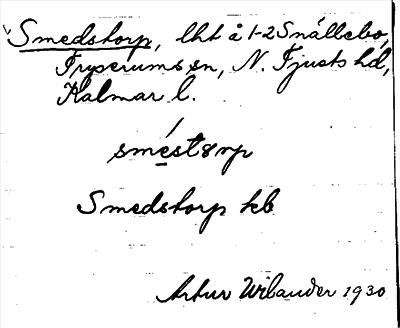 Smedstorp, lht å 1-2 Snållebo,
Tryserums sn, N. Tjusts hd,
Kalmar l.
smést8rp
Smedstorp kb
Artur Wilander 1930